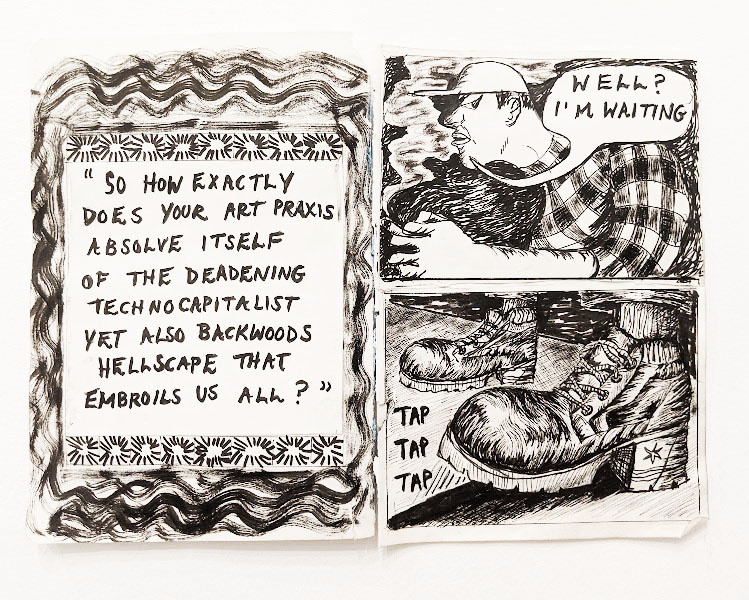 "SO HOW EXACTLY
DOES YOUR ART PRAXIS
ABSOLVE ITSELF
OF THE DEADENING
TECHNOCAPITALIST
YET ALSO BACKWOODS
HELLSCAPE THAT
EMBROILS US ALL?"
WELL?
I'M WAITING
TAP
TAP
TAP